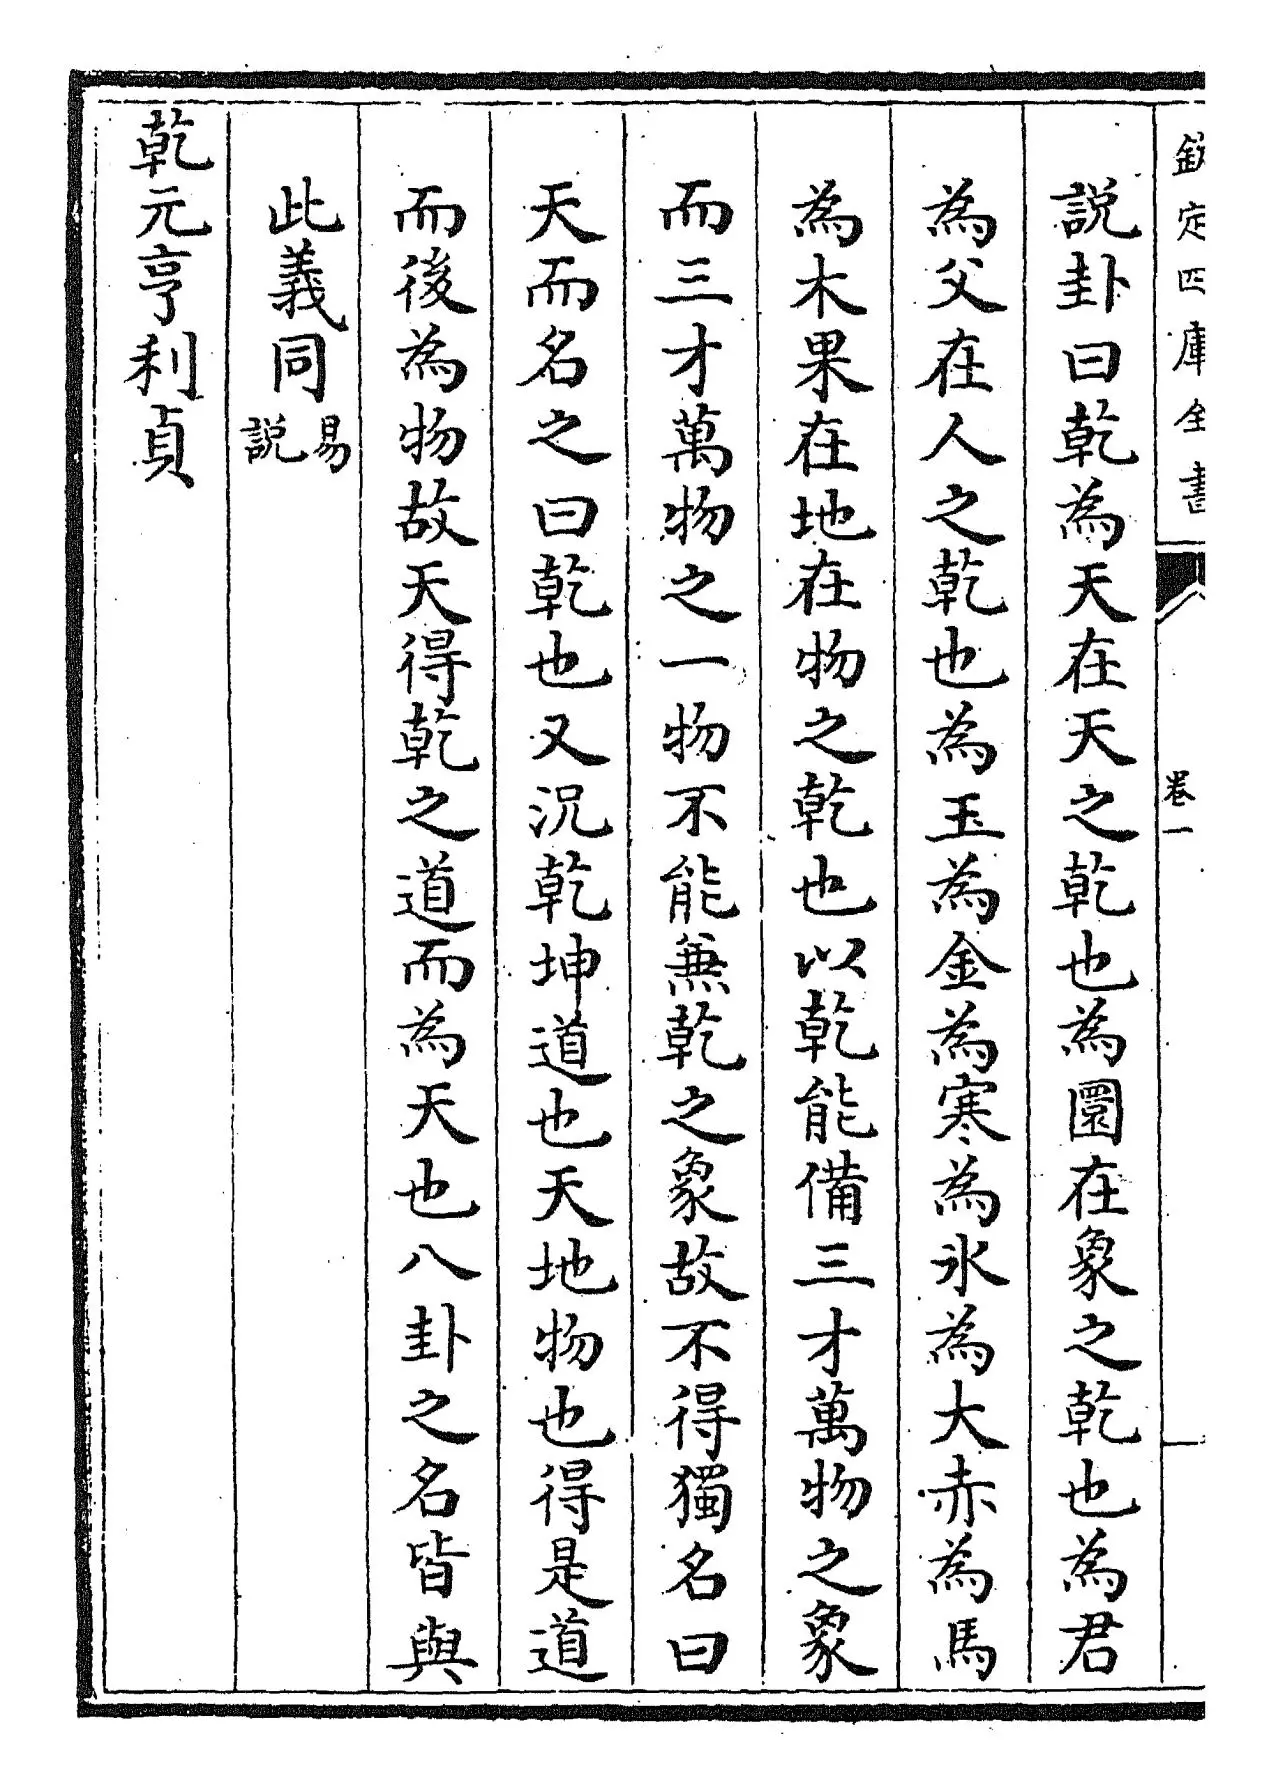 欽定四庫全書
卷一
說卦曰乾為天在天之乾也為圜在象之乾也為君
為父在人之乾也為玉為金為寒為氷為大赤為馬
為木果在地在物之乾也以乾能備三才萬物之象
而三才萬物之一物不能兼乾之象故不得獨名曰
天而名之曰乾也又況乾坤道也天地物也得是道
而後為物故天得乾之道而為天也八卦之名皆與
此義同易說
乾元亨利貞